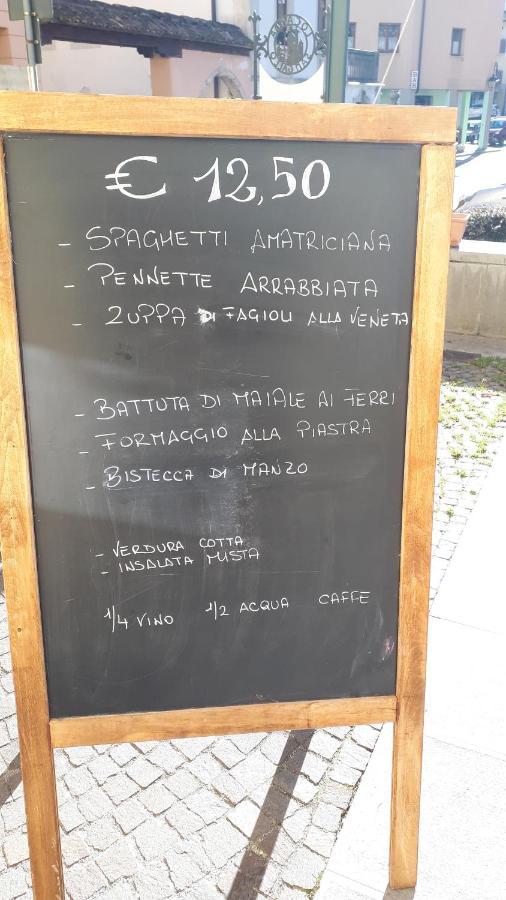 € 12,50
- SPAGHETTI AMATRICIANA
- PENNETTE ARRABBIATA
- ZUPPA DI FAGIOLI ALLA VENETA
- BATTUTA DI MAIALE AI FERRI
- FORMAGGIO ALLA PIASTRA
- BISTECCA DI MANZO
- VERDURA COTTA
- INSALATA MISTA
1/4 VINO 1/2 ACQUA CAFFE